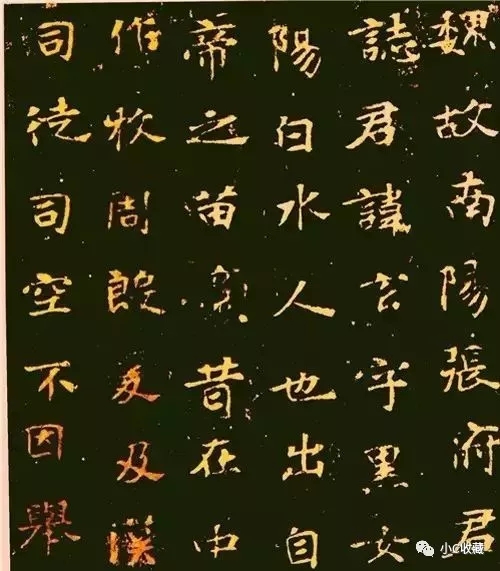 魏故南陽張府君
誌君諱玄字黑女
陽白水人也出自
帝之苗裔昔在中
作牧周殷爰及漢
司徒司空不因舉
小C收藏